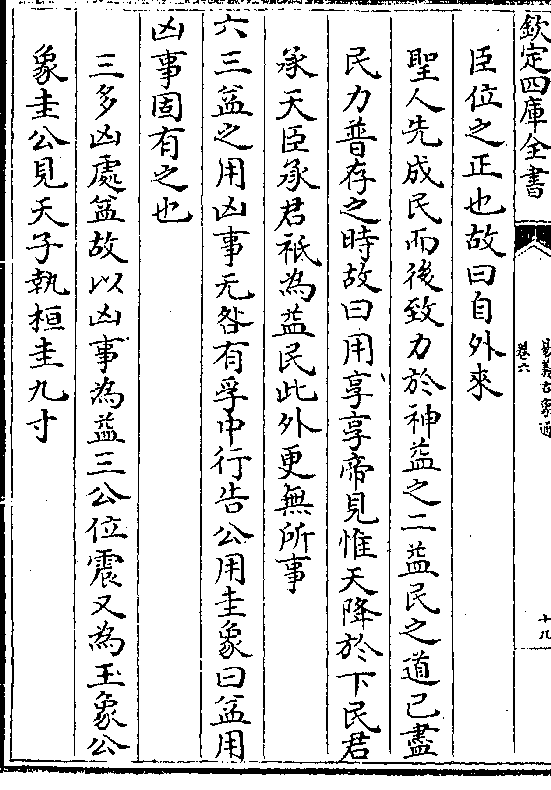 欽定四庫全書
易義古象通
卷六
十九
臣位之正也故曰自外來
聖人先成民而後致力於神益之二益民之道已盡
民力普存之時故曰用享享帝見惟天降於下民君
承天臣承君祇為益民此外更無所事
六三益之用凶事无咎有孚中行告公用圭象曰益用
凶事固有之也
三多凶處益故以凶事為益三公位震又為玉象公
象圭公見天子執桓圭九寸